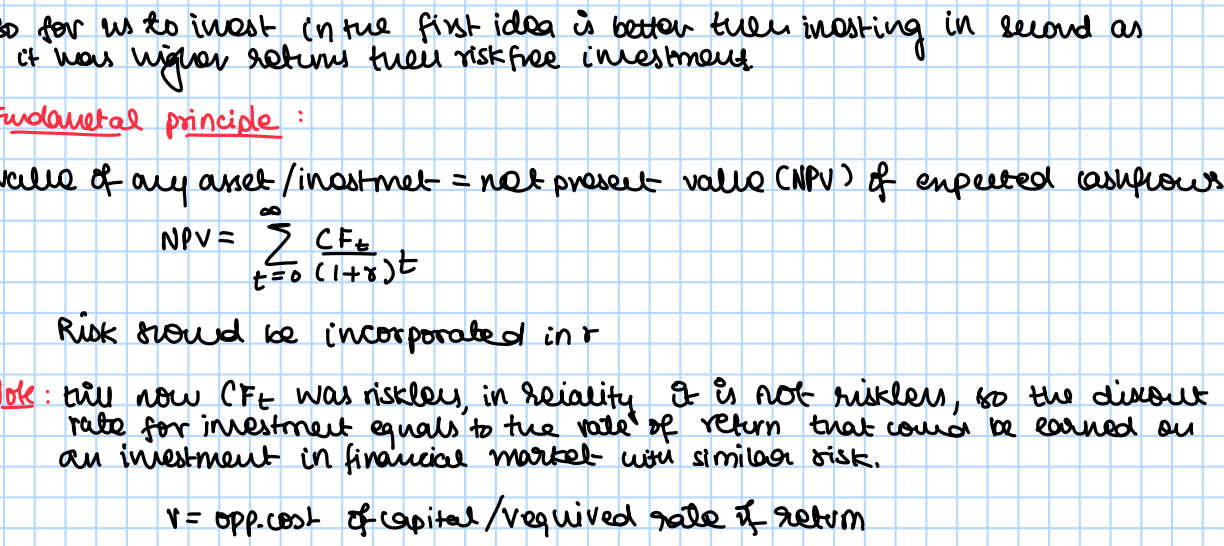 so for us to invest in the first idea is better then inosting in second as
it has higher returns then risk free investment.
Fundametal principle :
value of any asset / inostmet = net present value (NPV) of expected cashflows
NPV = ∞ Σ t=0 CFt / (1+r)t
Risk shoud be incorporated in r
Note : till now CFt was riskless, in reiality it is not riskless, so the discout
rate for investment equals to the rate of return that coud be earned on
an investment in financial market with similar risk.
r = opp. cost of capital / required rate of return